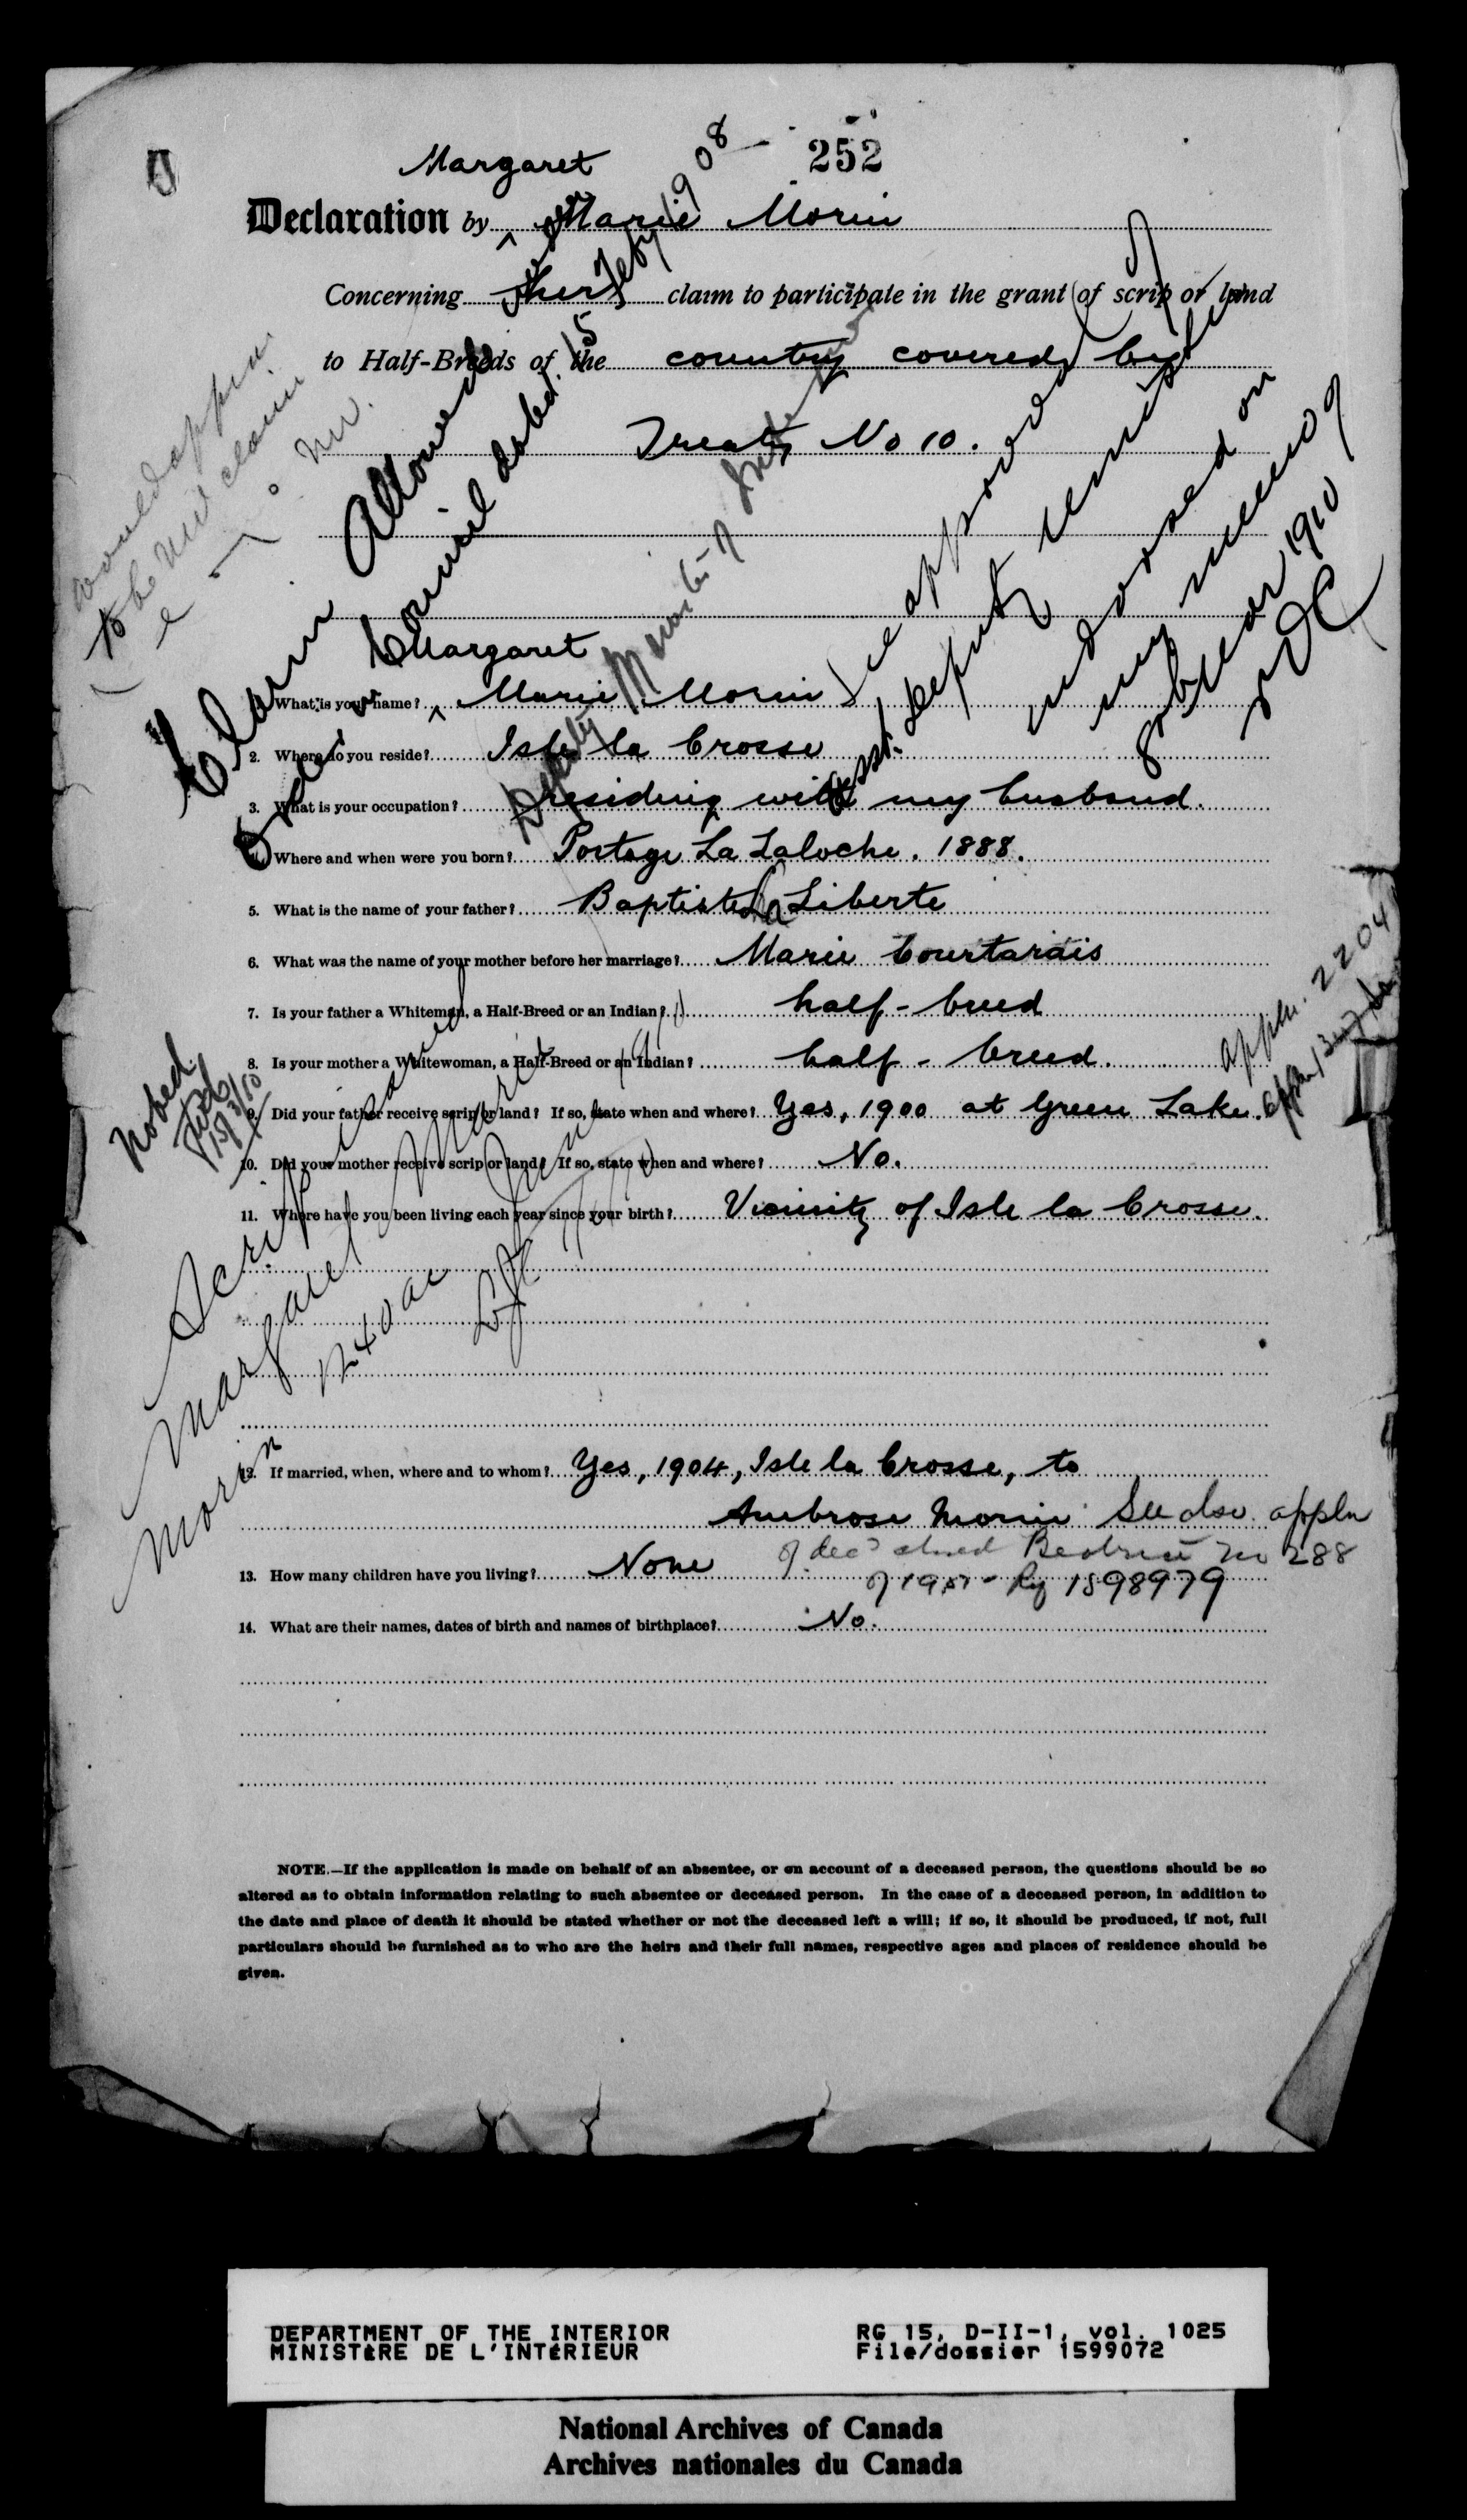 252
Margaret
Declaration by ^ Marie Morin
Concerning her claim to participate in the grant of scrip or land
to Half-Breeds of the country covered by
Treaty No 10.
would appear
to be new claim
Claim Allowed
Order in Council dated 15 Feby 1908
Deputy Minister of Interior
See approval of
Asst. Deputy Minister
endorsed on
my memo of
8 1910
Margaret
1. What is your name? ^ Marie Morin
2. Where do you reside? Isle la Crosse
3. What is your occupation? residing with my husband.
4. Where and when were you born? Portage La Laloche. 1888.
5. What is the name of your father? Baptiste La Liberte
6. What was the name of your mother before her marriage? Marie Courtarais
7. Is your father a Whiteman, a Half-Breed or an Indian? half-breed
8. Is your mother a Whitewoman, a Half-Breed or an Indian? half-breed.
appln. 2204
Noted
15/3/10
9. Did your father receive scrip or land? If so, state when and where? Yes, 1900 at Green Lake.
10. Did your mother receive scrip or land? If so, state when and where? No.
11. Where have you been living each year since your birth? Vicinity of Isle la Crosse.
Scrip issued
Margaret Marie
Morin
240 ac
12. If married, when, where and to whom? Yes, 1904, Isle la Crosse, to
Ambrose Morin See also appln
of dec'd Beatrice No 288
13. How many children have you living? None
Rg 1598979
14. What are their names, dates of birth and names of birthplace? No.
NOTE.—If the application is made on behalf of an absentee, or on account of a deceased person, the questions should be so
altered as to obtain information relating to such absentee or deceased person. In the case of a deceased person, in addition to
the date and place of death it should be stated whether or not the deceased left a will; if so, it should be produced, if not, full
particulars should be furnished as to who are the heirs and their full names, respective ages and places of residence should be
given.
DEPARTMENT OF THE INTERIOR
MINISTÈRE DE L'INTÉRIEUR
RG 15, D-II-1, vol. 1025
File/dossier 1599072
National Archives of Canada
Archives nationales du Canada